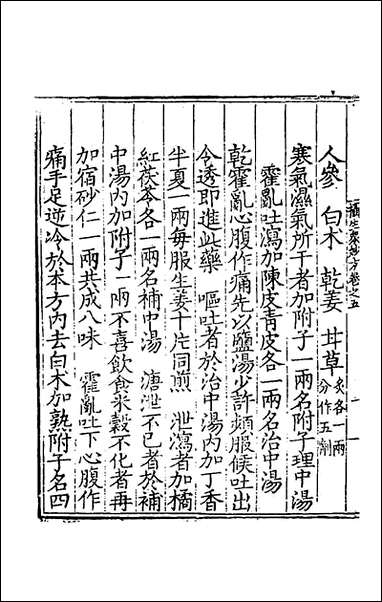 攝生衆妙方卷之五
人參　白朮　乾姜　甘草炙各一兩
分作五劑
寒氣濕氣所干者加附子一兩名附子理中湯
霍亂吐瀉加陳皮青皮各一兩名治中湯
乾霍亂心腹作痛先以鹽湯少許頻服候吐出
令透即進此藥　嘔吐者於治中湯內加丁香
半夏一兩每服生姜十片同煎　泄瀉者加橘
紅茯苓各一兩名補中湯　溏泄不已者於補
中湯內加附子一兩不喜飲食米穀不化者再
加宿砂仁一兩共成八味　霍亂吐下心腹作
痛手足逆冷於本方內去白朮加熟附子名四